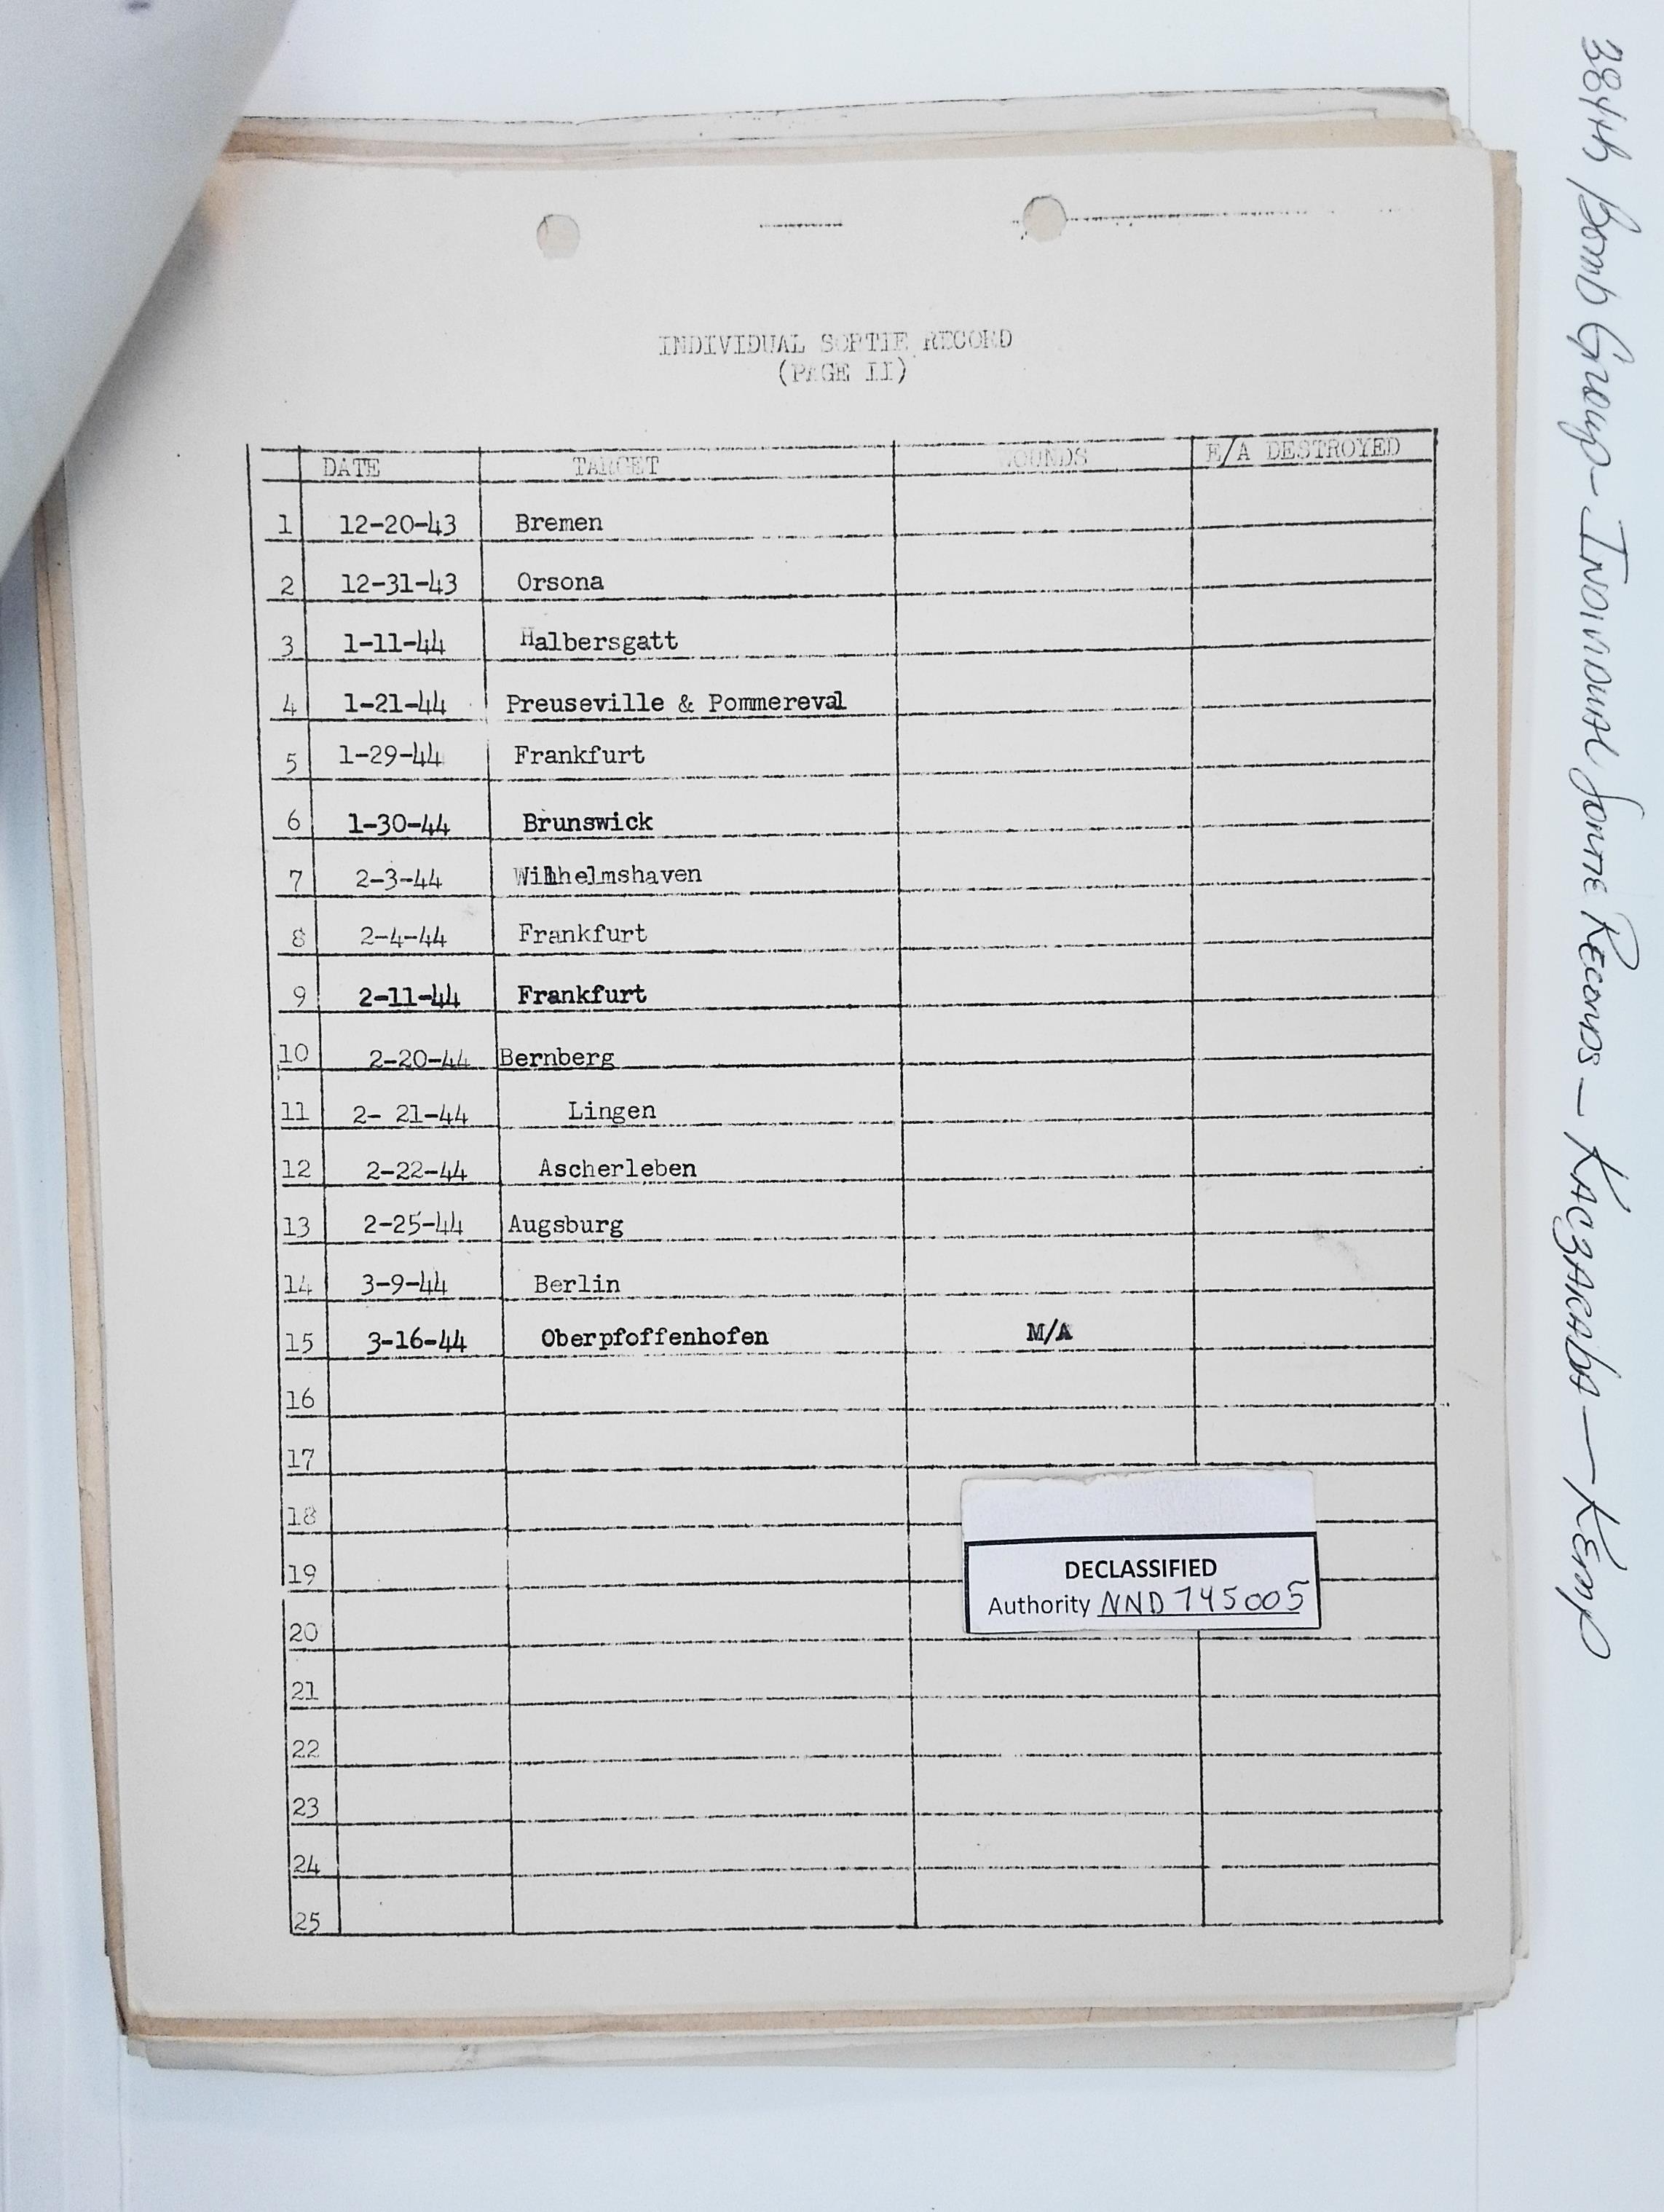 INDIVIDUAL SORTIE RECORD
(PAGE II)
DATE TARGET WOUNDS E/A DESTROYED
1 12-20-43 Bremen
2 12-31-43 Orsona
3 1-11-44 Halbersgatt
4 1-21-44 Preuseville & Pommereval
5 1-29-44 Frankfurt
6 1-30-44 Brunswick
7 2-3-44 Wilhelmshaven
8 2-4-44 Frankfurt
9 2-11-44 Frankfurt
10 2-20-44 Bernberg
11 2- 21-44 Lingen
12 2-22-44 Ascherleben
13 2-25-44 Augsburg
14 3-9-44 Berlin
15 3-16-44 Oberpfoffenhofen M/A
16
17
18
19
20
21
22
23
24
25
DECLASSIFIED
Authority NND 745005
384th Bomb Group - Individual Sortie Records - Kaczaraba - Kemp